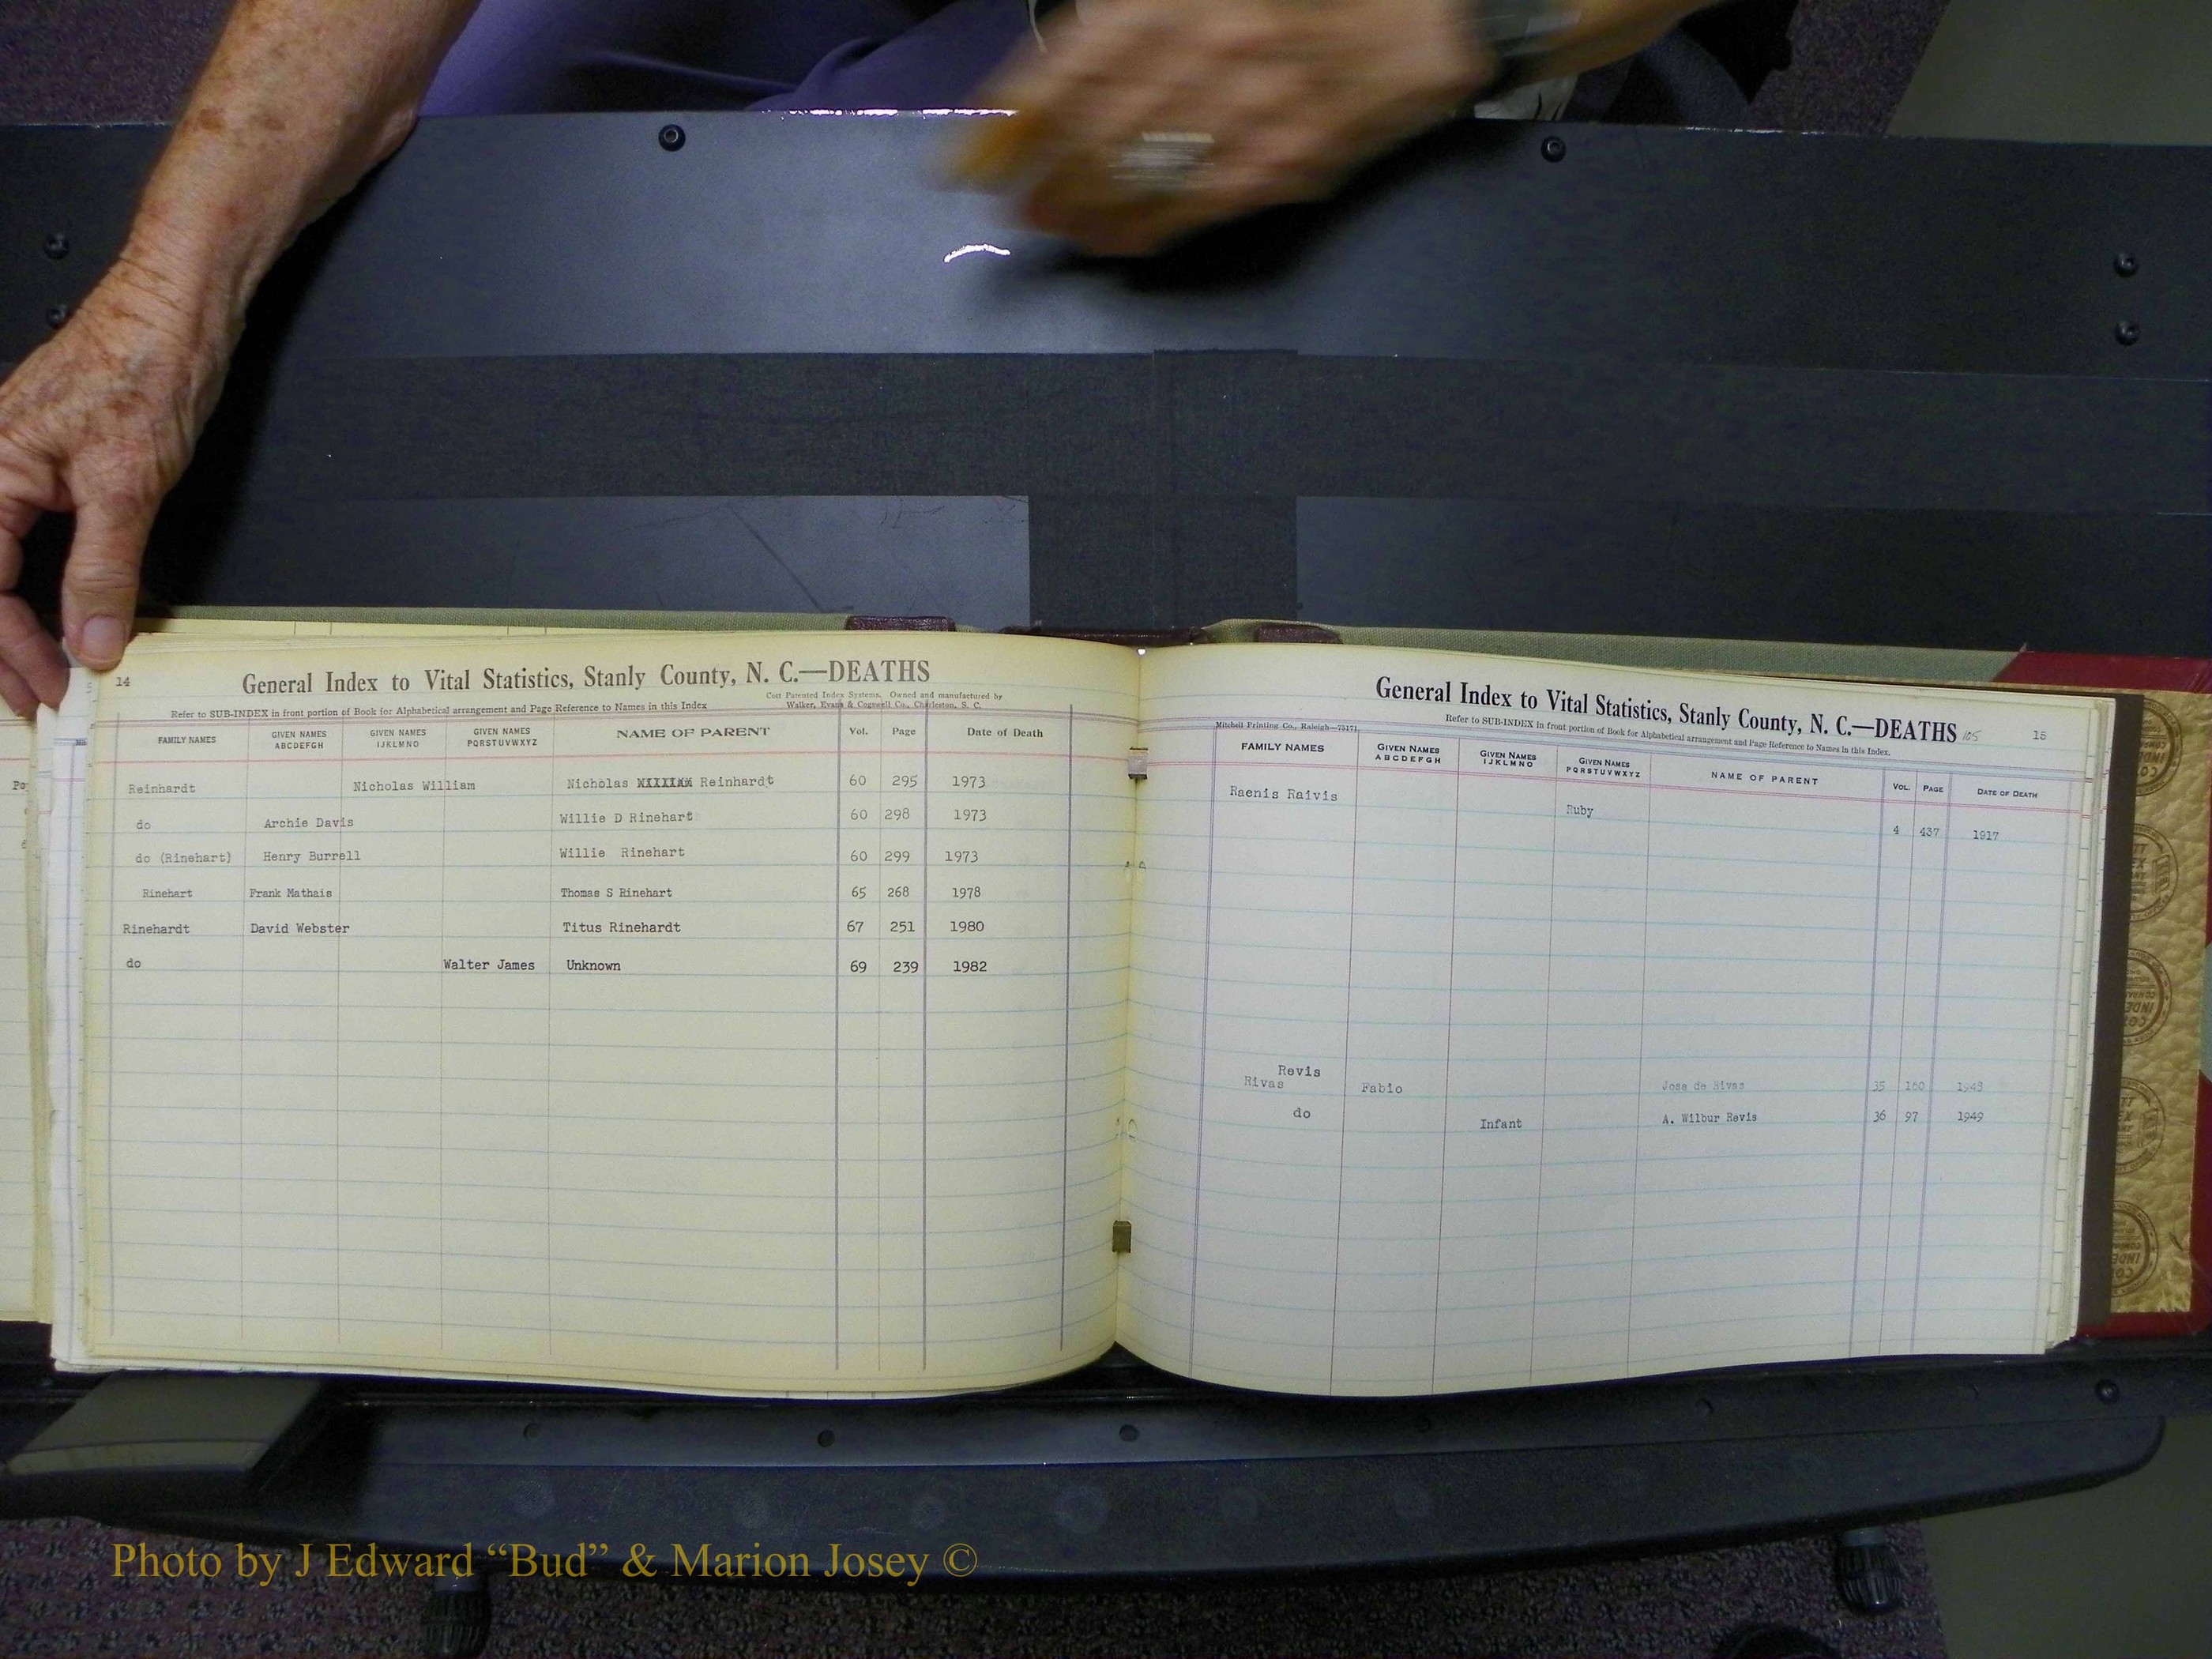 14
General Index to Vital Statistics, Stanly County, N. C.—DEATHS
Cott Patented Index Systems. Owned and manufactured by
Walker, Evans & Cogswell Co., Charleston, S. C.
Refer to SUB-INDEX in front portion of Book for Alphabetical arrangement and Page Reference to Names in this Index
FAMILY NAMES GIVEN NAMES ABCDEFGH GIVEN NAMES IJKLMNO GIVEN NAMES PQRSTUVWXYZ NAME OF PARENT Vol. Page Date of Death
Reinhardt Nicholas William Nicholas Reinhardt 60 295 1973
do Archie Davis Willie D Rinehart 60 298 1973
do (Rinehart) Henry Burrell Willie Rinehart 60 299 1973
Rinehart Frank Mathais Thomas S Rinehart 65 268 1978
Rinehardt David Webster Titus Rinehardt 67 251 1980
do Walter James Unknown 69 239 1982
General Index to Vital Statistics, Stanly County, N. C.—DEATHS 105 15
Mitchell Printing Co., Raleigh—75171
Refer to SUB-INDEX in front portion of Book for Alphabetical arrangement and Page Reference to Names in this Index.
FAMILY NAMES GIVEN NAMES ABCDEFGH GIVEN NAMES IJKLMNO GIVEN NAMES PQRSTUVWXYZ NAME OF PARENT VOL. PAGE DATE OF DEATH
Raenis Raivis Ruby 4 437 1917
Revis
Rivas Fabio Jose de Rivas 35 160 1948
do Infant A. Wilbur Revis 36 97 1949
Photo by J Edward “Bud” & Marion Josey ©